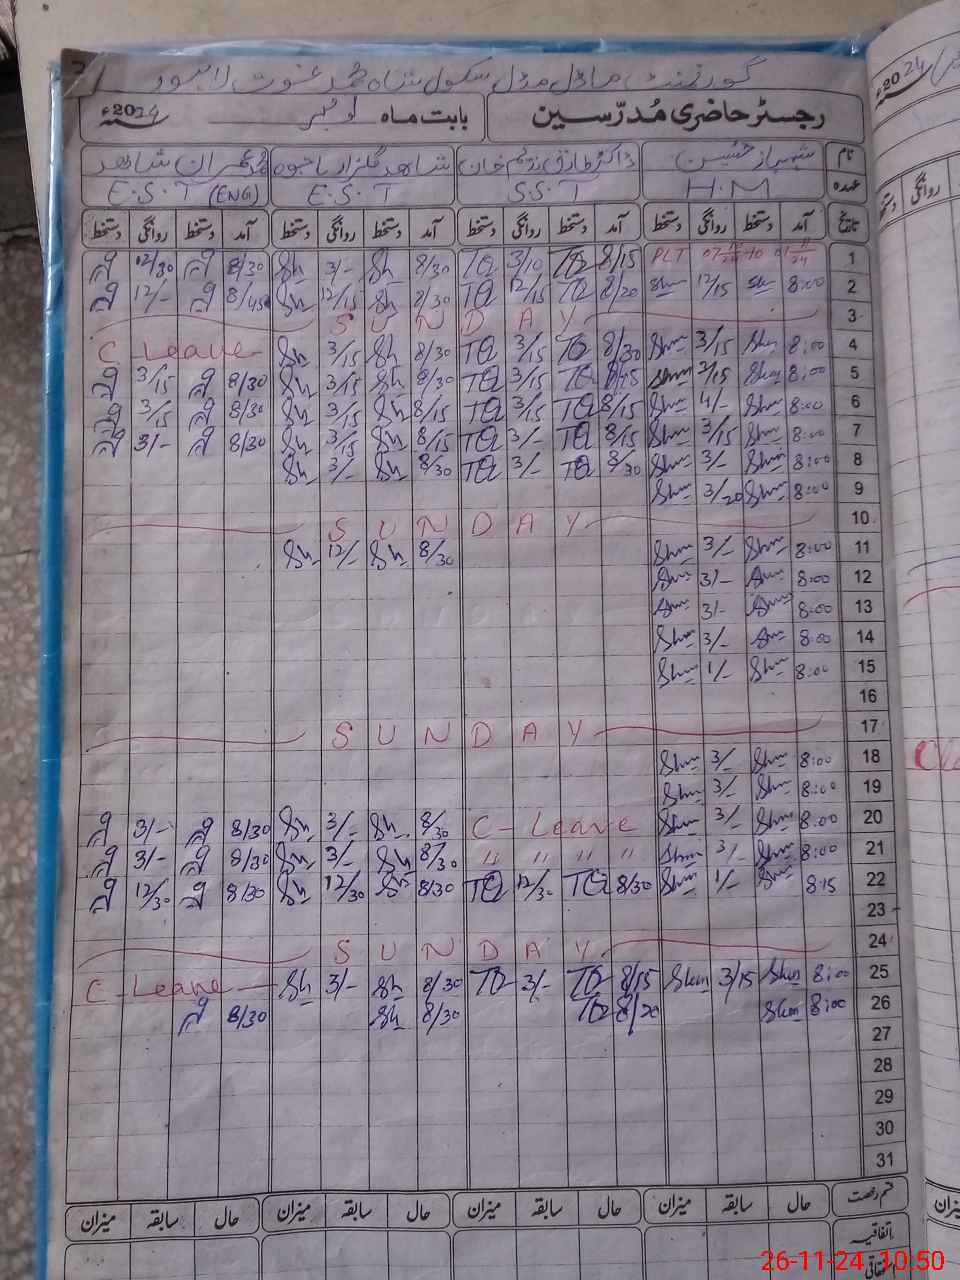 گورنمنٹ ماڈل مڈل سکول شاہ محمد غوث لاہور
رجسٹر حاضری مُدرّسین بابت ماہ نومبر سنہ 2024ء
نام شہباز حسین ڈاکٹر طارق ندیم خان شاہد گلزار باجوہ محمد عمران شاہد
عہدہ H.M S.S.T E.S.T E.S.T (ENG)
تاریخ آمد دستخط روانگی دستخط آمد دستخط روانگی دستخط آمد دستخط روانگی دستخط آمد دستخط روانگی دستخط
12/30 8/30 Sh 3/- Sh 8/30 TQ 3/10 TQ 8/15 PLT 1
12/- 8/45 Sh 12/15 Sh 8/30 TQ 12/15 TQ 8/20 Shm 12/15 Shm 8:00 2
SUNDAY 3
C Leave Sh 3/15 Sh 8/30 TQ 3/15 TQ 8/30 Shm 3/15 Shm 8:00 4
3/15 8/30 Sh 3/15 Sh 8/30 TQ 3/15 TQ 8/15 Shm 3/15 Shm 8:00 5
3/15 8/30 Sh 3/15 Sh 8/15 TQ 3/15 TQ 8/15 Shm 4/- Shm 8:00 6
3/- 8/30 Sh 3/15 Sh 8/15 TQ 3/- TQ 8/15 Shm 3/15 Shm 8:00 7
Sh 3/- Sh 8/30 TQ 3/- TQ 8/30 Shm 3/- Shm 8:00 8
Shm 3/20 Shm 8:00 9
SUNDAY 10
Sh 12/- Sh 8/30 Shm 3/- Shm 8:00 11
Shm 3/- Shm 8:00 12
Shm 3/- Shm 8:00 13
Shm 3/- Shm 8:00 14
Shm 1/- Shm 8:00 15
16
SUNDAY 17
Shm 3/- Shm 8:00 18
Shm 3/- Shm 8:00 19
3/- 8/30 Sh 3/- Sh 8/30 C-Leave Shm 3/- Shm 8:00 20
3/- 8/30 Sh 3/- Sh 8/30 " " " " Shm 3/- Shm 8:00 21
12/30 8/30 Sh 12/30 Sh 8/30 TQ 12/30 TQ 8/30 Shm 1/- Shm 8:15 22
23
SUNDAY 24
C-Leave Sh 3/- Sh 8/30 TQ 3/- TQ 8/15 Shm 3/15 Shm 8:00 25
8/30 Sh 8/30 TQ 8/20 Shm 8:00 26
27
28
29
30
31
قسم رخصت حال سابقہ میزان حال سابقہ میزان حال سابقہ میزان حال سابقہ میزان
اتفاقیہ
26-11-24 10:50